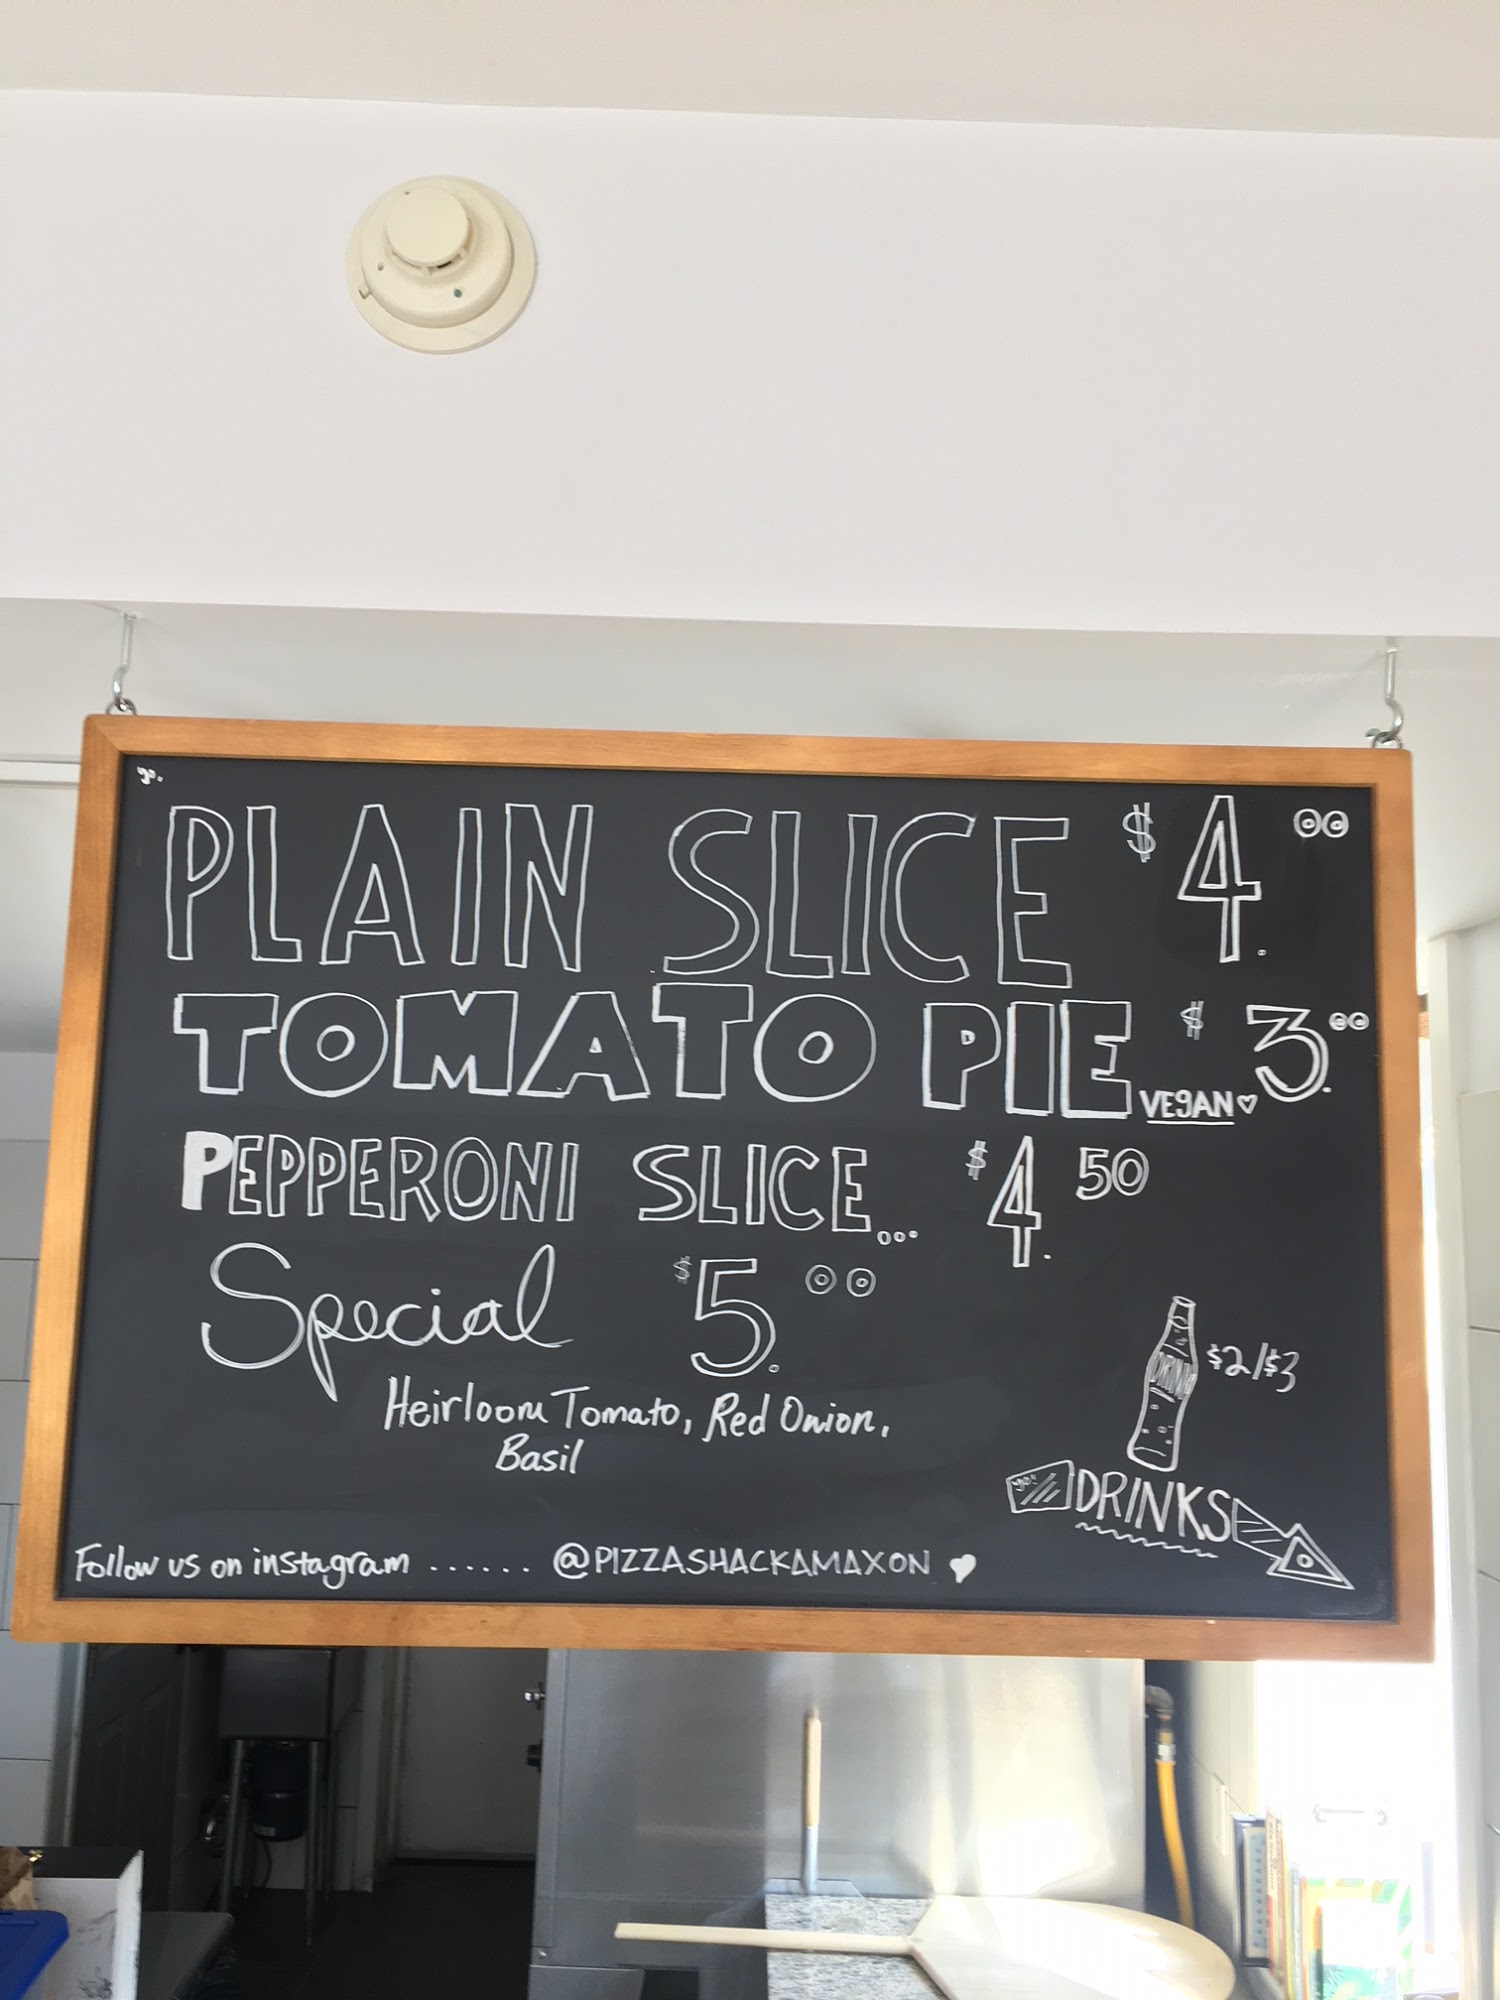 yo.
PLAIN SLICE $4.00
TOMATO PIE VEGAN $3.00
PEPPERONI SLICE... $4.50
Special $5.00
Heirloom Tomato, Red Onion,
Basil
DRINK
$2/$3
yo!! DRINKS
Follow us on instagram ...... @PIZZASHACKAMAXON